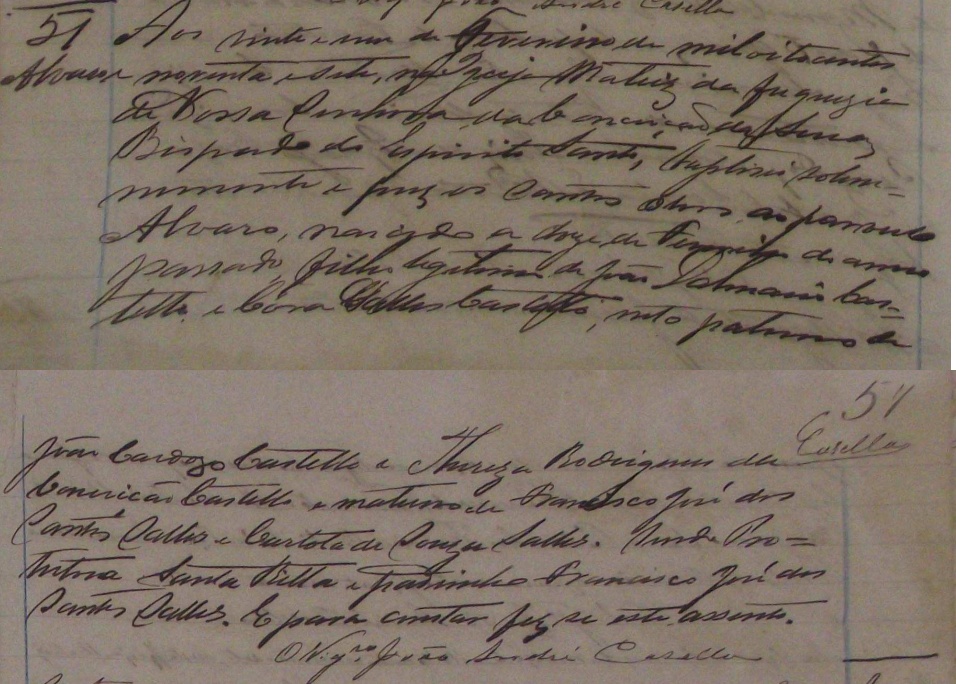 João André Casella
51 Aos vinte e um de Fevereiro de mil oitocentos
Alvaro e noventa e sete, na Igreja Matriz da freguezia
de Nossa Senhora da Conceição da Serra,
Bispado do Espirito Santo, baptizei solem=
nemente e puz os Santos Oleos ao parvulo
Alvaro, nascido a doze de Fevereiro do anno
passado, filho legitimo de João Dalmacio Cas=
tello e Cora Salles Castello, neto paterno de
51
Casella
João Cardozo Castello e Thereza Rodrigues da
Conceição Castello e materno de Francisco José dos
Santos Salles e Carlota de Souza Salles. Sendo Pro=
tectora Santa Ritta e padrinho Francisco José dos
Santos Salles. E para constar fez se este assento.
O Vigrº João André Casella